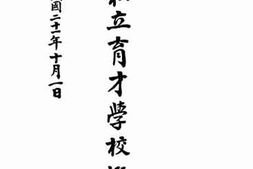 立育才學校
國二十一年十月一日